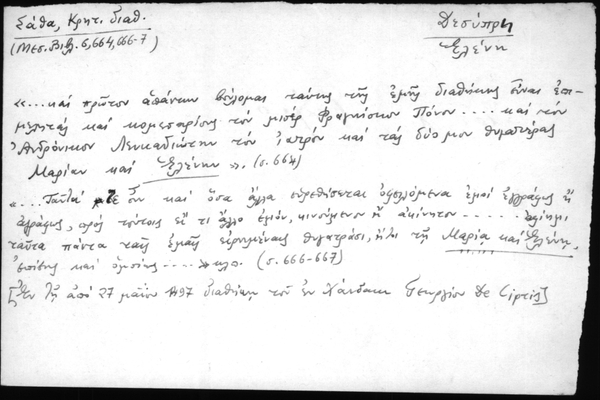 Σάθα, Κρητ. διαθ.
(Μεσ. Βιβλ. 6, 664, 666-7)
Δεσύπρη
Ἑλένη
«... καὶ πρῶτον ἁπάντων βούλομαι ταύτης τῆς ἐμῆς διαθήκης εἶναι ἐπι-
μελητὰς καὶ κομεσαρίους τὸν μισὲρ Φραγκίσκον Πόνον .... καὶ τὸν
Ἀνδρόνικον Λευκαδιώτην τὸν ἰατρὸν καὶ τὰς δύο μου θυγατέρας
Μαρίαν καὶ Ἑλένην ». (σ. 664)
«... Ταῦτά τε οὖν καὶ ὅσα ἄλλα εὑρεθήσεται ὀφειλόμενα ἐμοὶ ἐγγράφως ἢ
ἀγράφως, πρὸς τούτοις εἴ τι ἄλλο ἐμόν, κινούμενον ἢ ἀκίνητον ...... ἀφίημι
ταῦτα πάντα ταῖς ἐμαῖς εἰρημέναις θυγατράσι, ἤτοι τῇ Μαρίᾳ καὶ Ἑλένῃ,
ἐπίσης καὶ ὁμοίως .... » κλπ. (σ. 666-667)
[Ἐν τῇ ἀπὸ 27 μαΐου 1497 διαθήκῃ τοῦ ἐν Χάνδακι Γεωργίου De Cipris]